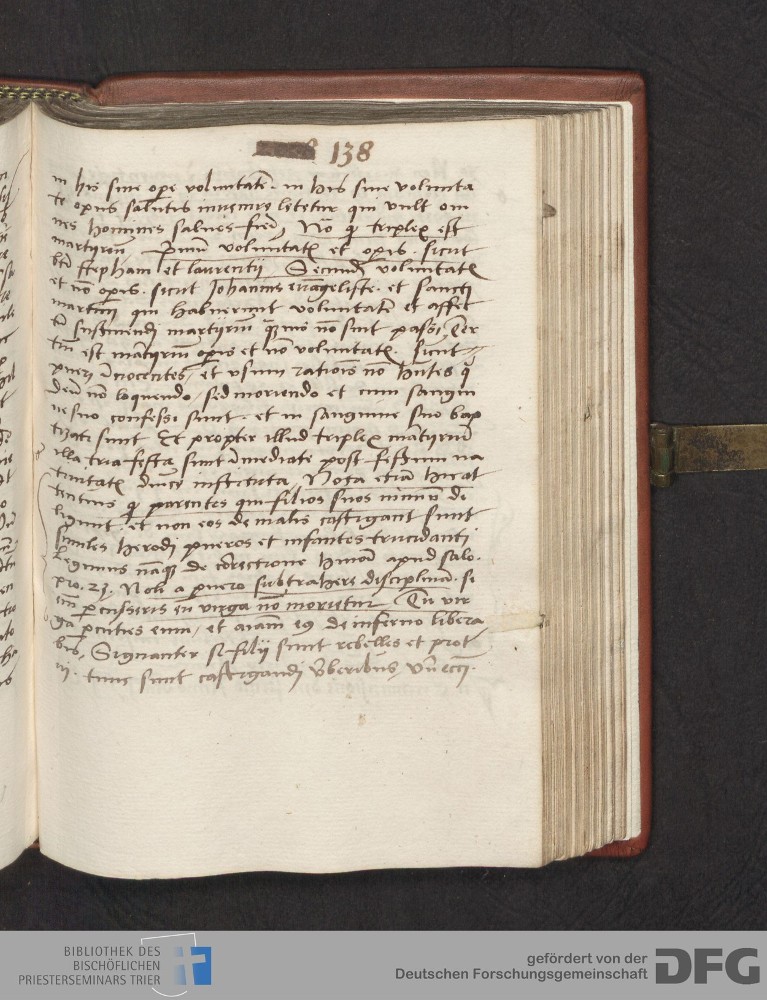 138
in his sine ope voluntatē. in his sine volunta
te opus salutis inuenire letetur qui vult om
nes homines saluos fieri, Nō qͥ triplex est
martyriū, Primū voluntatꝭ et opis. sicut
bti stephani et laurentij Secundū voluntatꝭ
et nō opis. sicut Johannis euāgeliste. et sancti
martini qui habuerunt voluntatē et affec
tū sustinendi martyriū quāuis nō sint passi, Ter
tiū est martyriū opis et nō voluntatꝭ. sicut
pueri īnocentes, et usum rationis nō hn̄tes qͥ
deū nō loquendo, sed moriendo et cum sangui
ne suo confessi sunt. et in sanguine suo bap
tizati sunt Et propter illud triplex martyriū
illa tria festa sunt īmediate post festum na
tiuitatꝭ dnice instituta, Nota etiā hic at
tentius qͥ parentes qui filios suos nimiū di
ligunt et non eos de malis castigant sunt
similes herodi pueros et infantes trucidanti
Legimus nāqꝫ de correctione apud Salo.
pro. 23. Noli a puero subtrahere disciplinā. si
eīn pcusseris eū virga nō morietur Tu vir
ga pcuties eum, et aīam eiꝰ de inferno libera
bis, Signanter si filij sunt rebelles et prot
ui. tunc sunt castigandi vberibus, Vn̄ ecci.
BIBLIOTHEK DES
BISCHÖFLICHEN
PRIESTERSEMINARS TRIER
gefördert von der
Deutschen Forschungsgemeinschaft
DFG